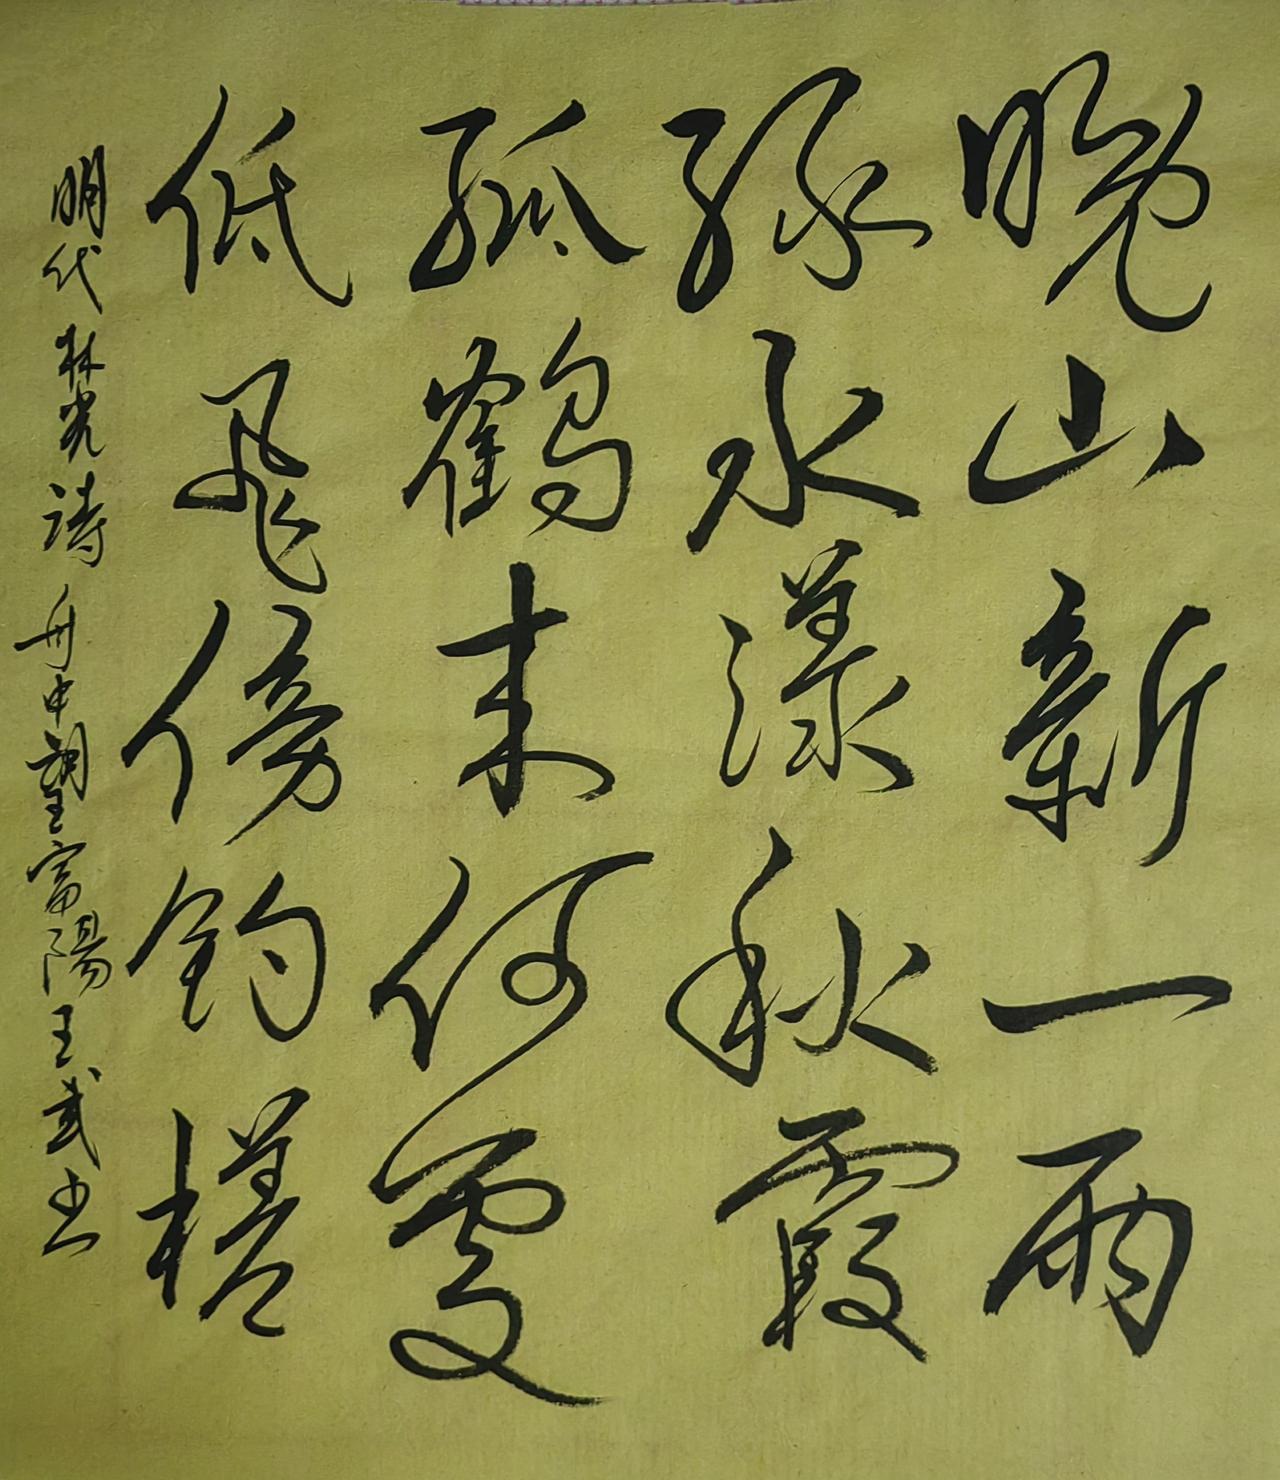 晚山新一雨
绿水漾秋霞
孤鶴来何處
低飛傍釣槎
明代林光詩舟中望富陽王武书